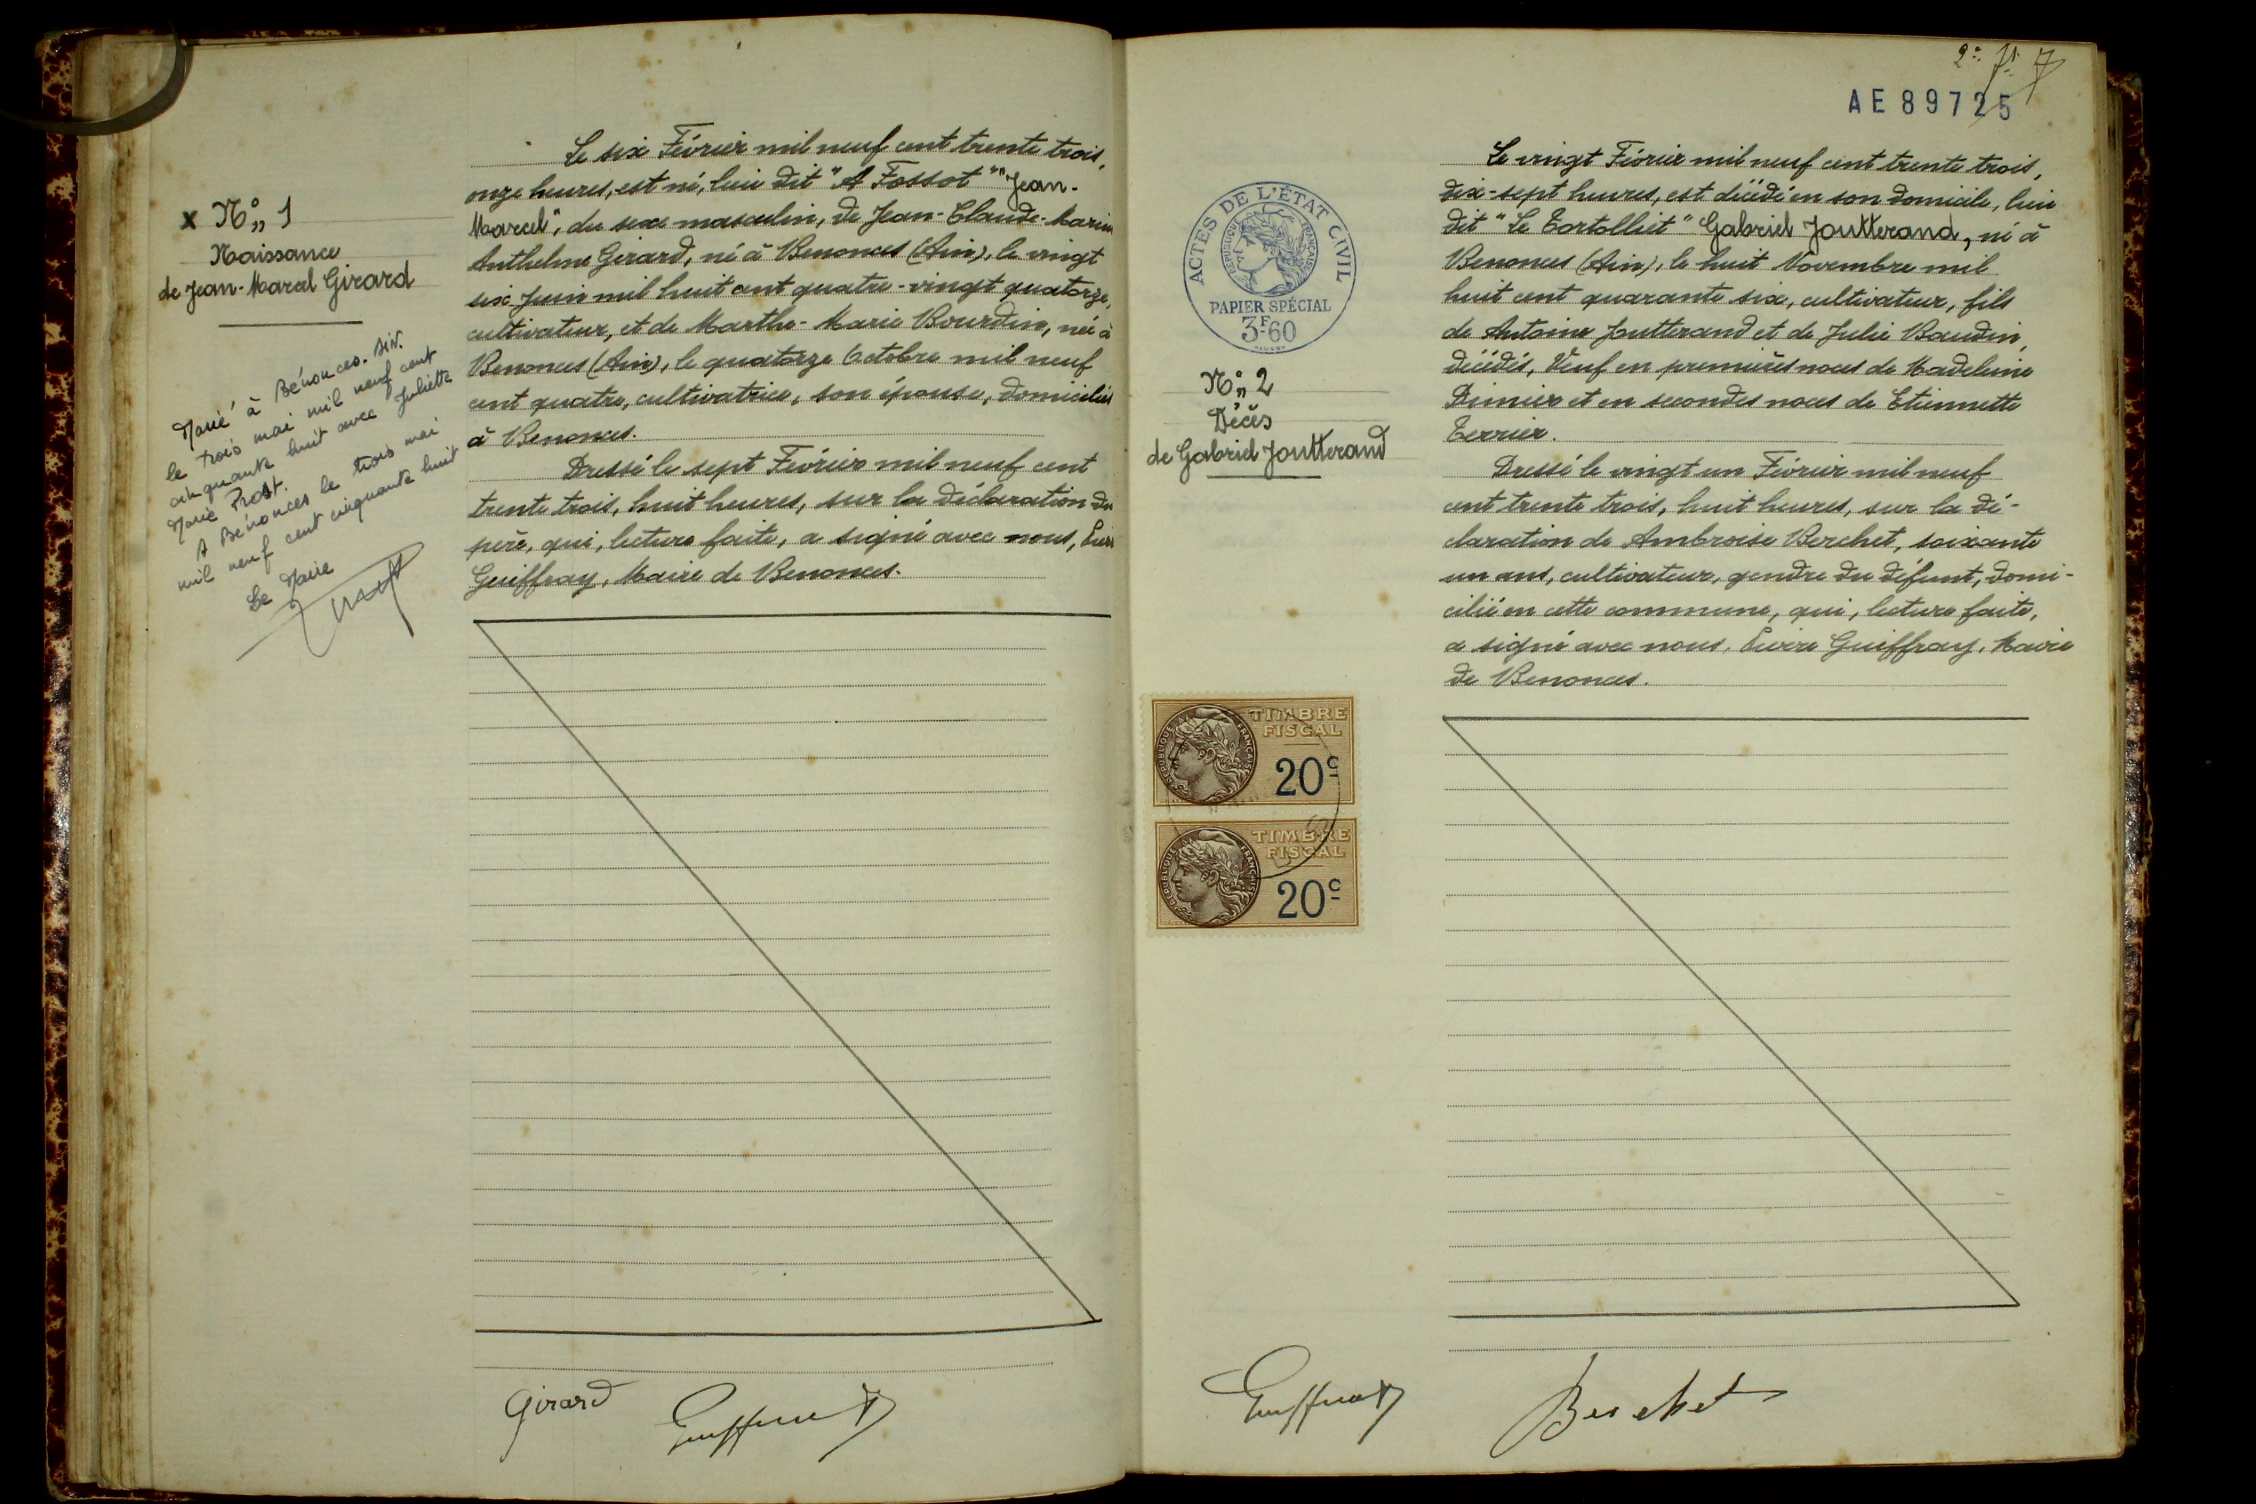 x N° „ 1
Naissance
de Jean-Marcel Girard
Marié à Bénonces. Ain.
le trois mai mil neuf cent
cinquante huit avec Juliette
Marie Prost.
A Bénonces le trois mai
mil neuf cent cinquante huit
Le Maire
Le six Février mil neuf cent trente trois,
onze heures, est né, lieu dit "A Fossot" "Jean-
Marcel", du sexe masculin, de Jean-Claude-Marin
Anthelme Girard, né à Benonces (Ain), le vingt
six Juin mil huit cent quatre-vingt quatorze,
cultivateur, et de Marthe-Marie Bourdin, née à
Benonces (Ain), le quatorze Octobre mil neuf
cent quatre, cultivatrice, son épouse, domiciliés
à Benonces.
Dressé le sept Février mil neuf cent
trente trois, huit heures, sur la déclaration du
père, qui, lecture faite, a signé avec nous,
Guiffray, Maire de Benonces.
Girard Guiffray
2e 7
AE 89725
ACTES DE L'ÉTAT CIVIL
RÉPUBLIQUE FRANÇAISE
PAPIER SPÉCIAL
3F60
N° „ 2
Décès
de Gabriel Joutterand
TIMBRE
FISCAL
RÉPUBLIQUE FRANÇAISE
20c
TIMBRE
FISCAL
RÉPUBLIQUE FRANÇAISE
20c
Le vingt Février mil neuf cent trente trois,
dix-sept heures, est décédé en son domicile, lieu
dit "Le Tortolliet" Gabriel Joutterand, né à
Benonces (Ain), le huit Novembre mil
huit cent quarante six, cultivateur, fils
de Antoine Joutterand et de Julie Baudin,
décédés, Veuf en premières noces de Madeleine
Dimier et en secondes noces de Etiennette
Terrier.
Dressé le vingt un Février mil neuf
cent trente trois, huit heures, sur la dé-
claration de Ambroise Berchet, soixante
un ans, cultivateur, gendre du défunt, domi-
cilié en cette commune, qui, lecture faite,
a signé avec nous, Guiffray, Maire
de Benonces.
Guiffray Berchet